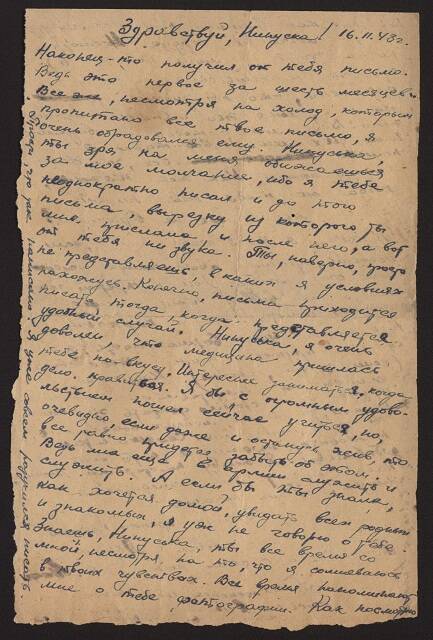 Здравствуй, Нинуська! 16.11.43г.
Наконец-то получил от тебя письмо.
Ведь это первое за шесть месяцев.
Все же, несмотря на холод, которым
пропитано все твое письмо, я
очень обрадовался ему. Нинуська,
ты зря на меня обижаешься
за мое молчание, ибо я тебе
неоднократно писал и до этого
письма, вырезку из которого ты
мне прислала и после него, а вот
от тебя ни звука. Ты, наверно, просто
не представляешь в каких я условиях
нахожусь. Конечно, письма приходится
писать тогда, когда представляется
удобный случай. Нинуська, я очень
доволен, что медицина пришлась
тебе по вкусу. Интересно заниматься, когда
дело нравиться. Я бы с огромным удово-
льствием пошел сейчас учиться, но,
очевидно, если даже и останусь жив, то
все равно придется забыть об этом.
Ведь мне еще в армии служить и
служить. А если бы ты знала,
как хочется домой, увидать всех родных
и знакомых, я уж не говорю о тебе.
Знаешь, Нинуська, ты все время со
мной, несмотря на то, что я сомневаюсь
в твоих чувствах. Все время напоминают
мне о тебе фотографии. Как посмотрю
написано. Я уже совсем разучился писать